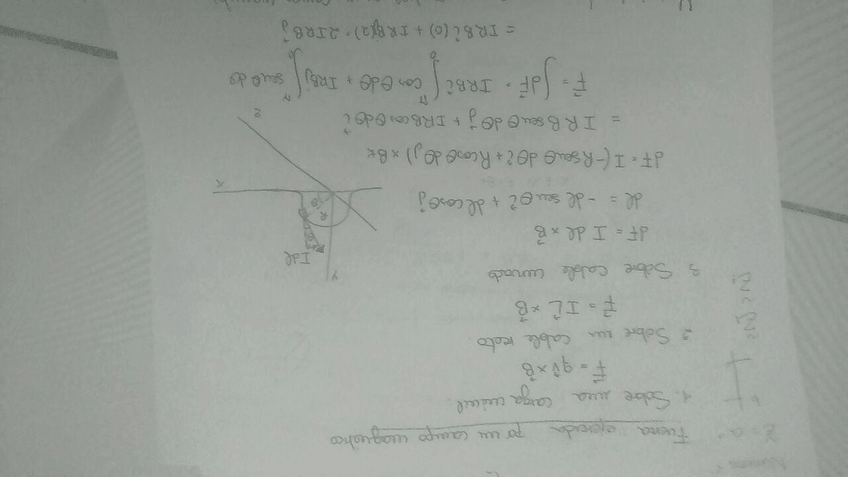 Fuerza ejercida por un campo magnético
1. Sobre una carga móvil.
F⃗ = q v⃗ × B⃗
2. Sobre un cable recto.
F⃗ = I L⃗ × B⃗
3. Sobre cable curvado
dF = I dl × B⃗
dl = - dl senθ î + dl cosθ ĵ
dF = I(-R senθ dθ î + R cosθ dθ ĵ) × Bk
= I R B senθ dθ ĵ + I R B cosθ dθ î
F⃗ = ∫ dF⃗ = I R B î ∫₀^π cosθ dθ + I R B ĵ ∫₀^π senθ dθ
= I R B î (0) + I R B ĵ (2) = 2 I R B ĵ
y
I dl
R
θ
x
z